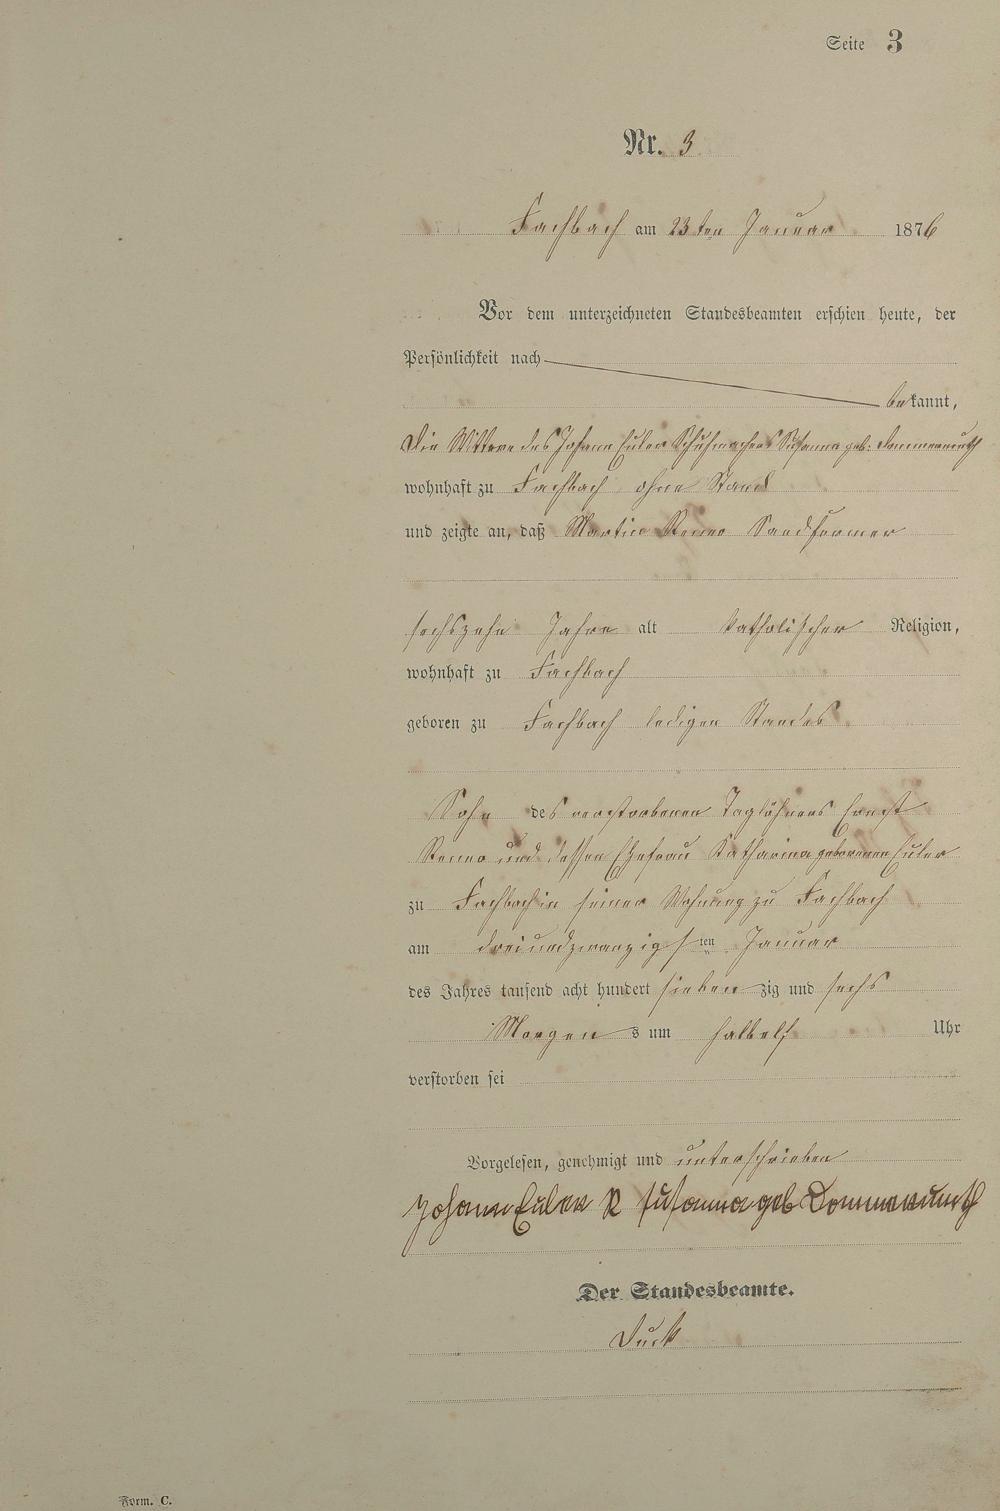 Seite 3
Nr. 3
Fachbach am 23ten Januar 1876
Vor dem unterzeichneten Standesbeamten erschien heute, der
Persönlichkeit nach
bekannt,
Die Wittwe des Johann Euler Schuhmachers Susanna geb: Dommermuth
wohnhaft zu Fachbach ohne Stand
und zeigte an, daß Martin Sandformer
sechszehn Jahre alt katholischer Religion,
wohnhaft zu Fachbach
geboren zu Fachbach ledigen Standes
Sohn des verstorbenen Taglöhners Ernst
und dessen Ehefrau Katharina geborenen Euler
zu Fachbach in seiner Wohnung zu Fachbach
am dreiundzwanzigsten Januar
des Jahres tausend acht hundert siebenzig und sechs
Morgens um halbelf Uhr
verstorben sei
Vorgelesen, genehmigt und unterschrieben
Johann Euler Susanna geb Dommermuth
Der Standesbeamte.
Form. C.